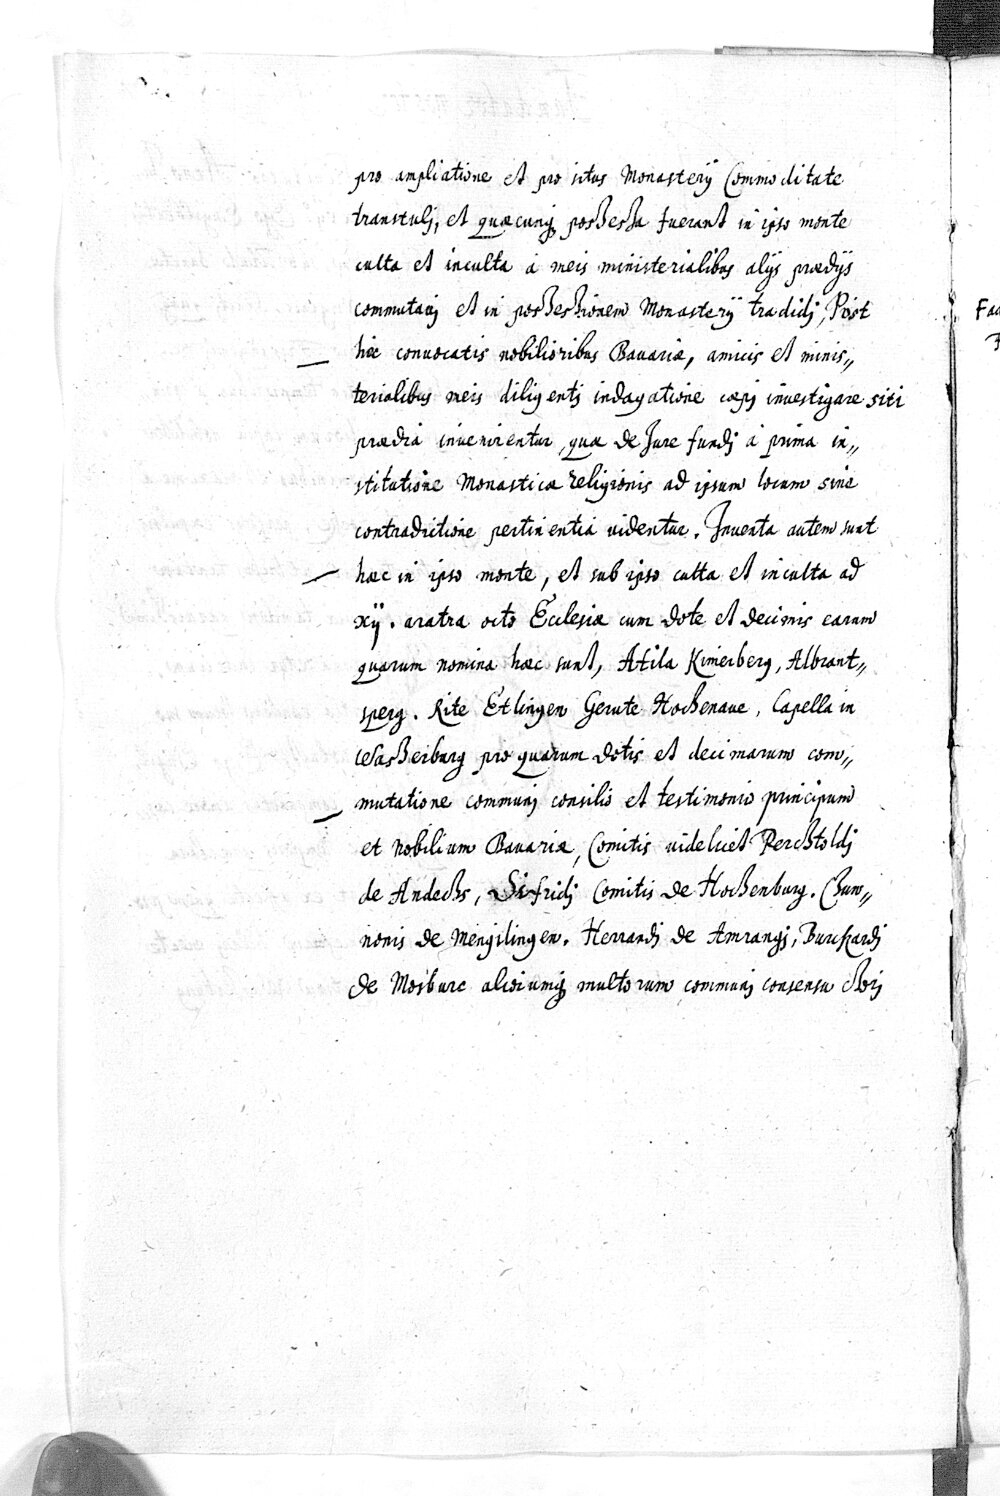 pro ampliatione et pro situs Monasterÿ Commoditate
transtulj, et quæcunq possessa fuerant in ipso monte
culta et inculta á meis ministerialibus alÿs prædÿs
commutavj et in possessionem Monasterÿ tradidj, Post
hæc convocatis nobilioribus Bavariæ, amicis et minis„
terialibus meis diligentj indagatione cœpj investigare siti
prædia invenirentur, quæ de Jure fundj á prima in„
stitutione Monasticæ religionis ad ipsum locum sine
contradictione pertinentia videntur. Inventa autem sunt
hæc in ipso monte, et sub ipso culta et inculta ad
xÿ. aratra octo Ecclesiæ cum dote et decimis earum
quarum nomina hæc sunt, Atila Kimerberg, Albrant„
sperg. Rite Etlingen Gerute Hochenaue, Capella in
Wasserburg pro quarum dotis et decimarum com„
mutatione communj consilio et testimonio principum
et Nobilium Bavariæ, Comitis videlicet Perchtoldj
de Andechs, Sifridj Comitis de Hochenburg. Chun„
nonis de Mengilingen. Herrandj de Amrangj, Burchardj
de Mosburc aliorumq multorum communj consensu chorj